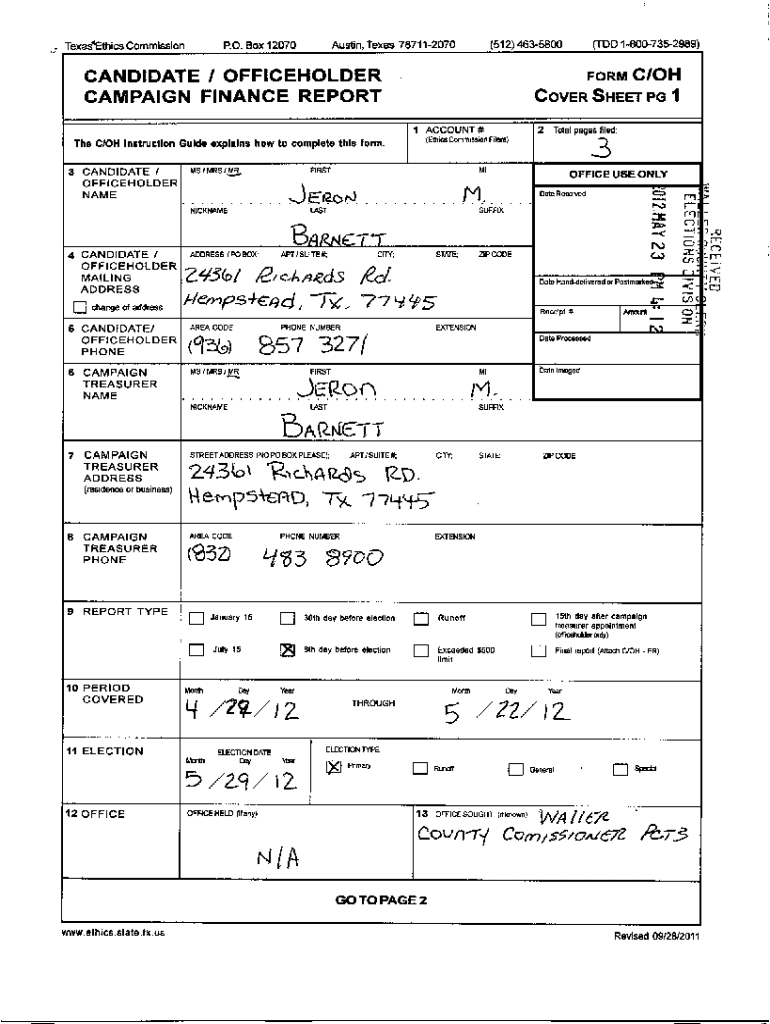 Texas Ethics Commission P.O. Box 12070 Austin, Texas 78711-2070 (512) 463-5800 (TDD 1-800-735-2989)
CANDIDATE / OFFICEHOLDER
CAMPAIGN FINANCE REPORT
FORM C/OH
COVER SHEET PG 1
The C/OH Instruction Guide explains how to complete this form.
1 ACCOUNT #
(Ethics Commission Filers)
2 Total pages filed:
3
3 CANDIDATE /
OFFICEHOLDER
NAME
MS / MRS / MR FIRST MI
JERON M.
NICKNAME LAST SUFFIX
BARNETT
OFFICE USE ONLY
Date Received
RECEIVED
ELECTIONS DIVISION
2012 MAY 23 PM 4:12
4 CANDIDATE /
OFFICEHOLDER
MAILING
ADDRESS
change of address
ADDRESS / PO BOX; APT / SUITE #; CITY; STATE; ZIP CODE
24361 Richards Rd.
Hempstead, Tx. 77445
Date Hand-delivered or Postmarked
Receipt # Amount
5 CANDIDATE/
OFFICEHOLDER
PHONE
AREA CODE PHONE NUMBER EXTENSION
(936) 857 3271
Date Processed
6 CAMPAIGN
TREASURER
NAME
MS / MRS / MR FIRST MI
JERON M.
NICKNAME LAST SUFFIX
BARNETT
Date Imaged
7 CAMPAIGN
TREASURER
ADDRESS
(residence or business)
STREET ADDRESS (NO PO BOX PLEASE); APT / SUITE #; CITY; STATE; ZIP CODE
24361 RichARds RD.
HempsteAD, Tx 77445
8 CAMPAIGN
TREASURER
PHONE
AREA CODE PHONE NUMBER EXTENSION
(832) 483 8900
9 REPORT TYPE
January 15 30th day before election Runoff 15th day after campaign
treasurer appointment
(officeholder only)
July 15 8th day before election Exceeded $500
limit
Final report (Attach C/OH - FR)
10 PERIOD
COVERED
Month Day Year
4 / 29 / 12
THROUGH
Month Day Year
5 / 22 / 12
11 ELECTION
ELECTION DATE
Month Day Year
5 / 29 / 12
ELECTION TYPE
Primary Runoff General Special
12 OFFICE
OFFICE HELD (if any)
N/A
13 OFFICE SOUGHT (if known) WAllER
COUNTY ComISSIONER PCT3
GO TO PAGE 2
www.ethics.state.tx.us
Revised 09/28/2011